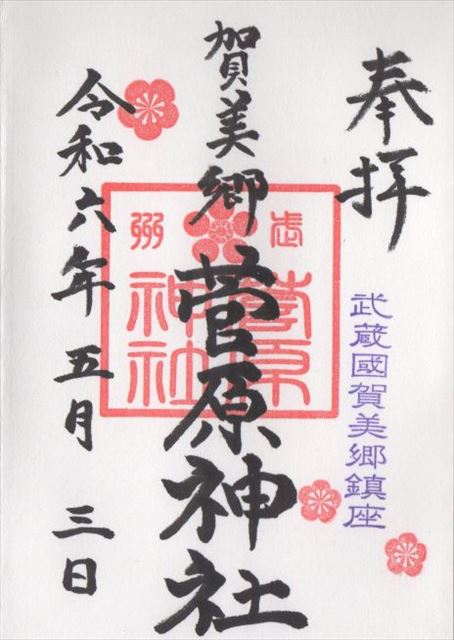 奉拝
武蔵國賀美郷鎮座
賀美郷 菅原神社
武州
菅原
神社
令和六年 五月 三日